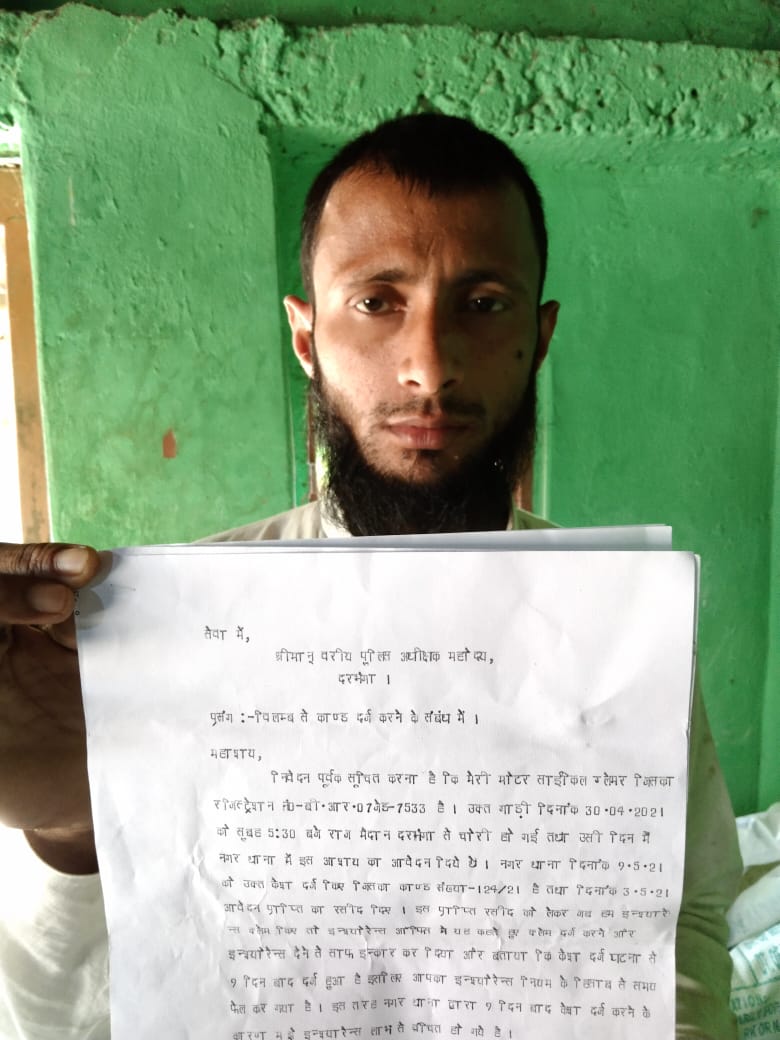 सेवा में,
श्रीमान् वरीय पुलिस अधीक्षक महोदय,
दरभंगा ।
प्रसंग :-विलम्ब से काण्ड दर्ज करने के संबंध में ।
महाशय,
निवेदन पूर्वक सूचित करना है कि मेरी मोटर साईकिल ग्लैमर जिसका
रजिस्ट्रेशन नं0-बी·आर·07जेड-7533 है । उक्त गाड़ी दिनांक 30·04·2021
को सुबह 5:30 बजे राज मैदान दरभंगा से चोरी हो गई तथा उसी दिन मैं
नगर थाना में इस आशय का आवेदन दिये थे । नगर थाना दिनांक 9·5·21
को उक्त केश दर्ज किए जिसका काण्ड संख्या-124/21 है तथा दिनांक 3·5·21
आवेदन प्राप्ति का रसीद दिए । इस प्राप्ति रसीद को लेकर जब हम इन्श्योरे
न्स क्लेम किए तो इन्श्योरेन्स आफिस में यह कहते हुए क्लेम दर्ज करने और
इन्श्योरेन्स देने से साफ इन्कार कर दिया और बताया कि केश दर्ज घटना से
9 दिन बाद दर्ज हुआ है इसलिए आपका इन्श्योरेन्स नियम के हिसाब से समय
फेल कर गया है । इस तरह नगर थाना द्वारा 9 दिन बाद केश दर्ज करने के
कारण मुझे इन्श्योरेन्स लाभ से वंचित हो गये है ।